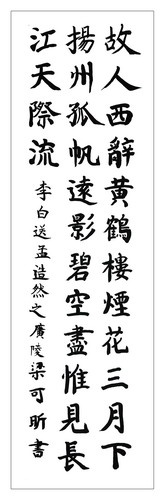 故人西辭黃鶴樓煙花三月下
揚州孤帆遠影碧空盡惟見長
江天際流
李白送孟造然之廣陵梁可昕書